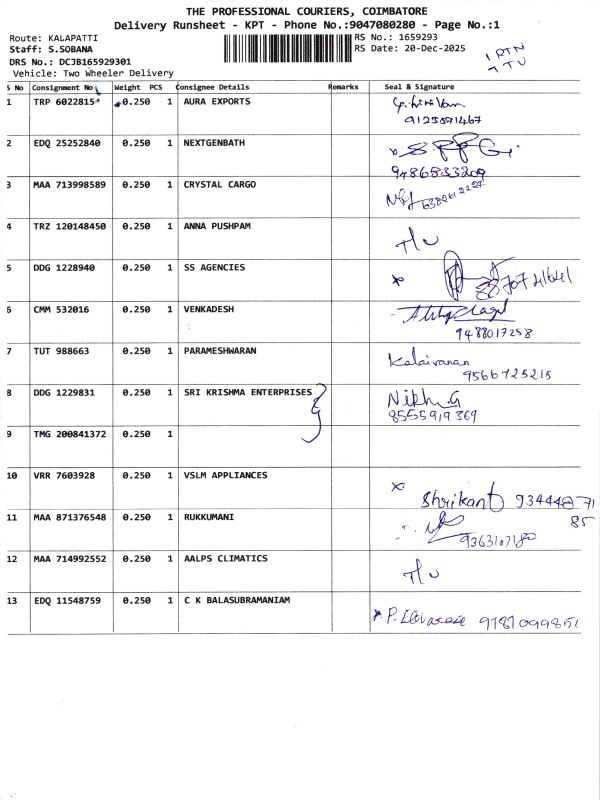 THE PROFESSIONAL COURIERS, COIMBATORE
Delivery Runsheet - KPT - Phone No.:9047080280 - Page No.:1
Route: KALAPATTI
RS No.: 1659293
Staff: S.SOBANA
RS Date: 20-Dec-2025
1 RTN
DRS No.: DCJB165929301
Vehicle: Two Wheeler Delivery
S No Consignment No Weight PCS Consignee Details Remarks Seal & Signature
1 TRP 6022815 0.250 1 AURA EXPORTS
2 EDQ 25252840 0.250 1 NEXTGENBATH
3 MAA 713998589 0.250 1 CRYSTAL CARGO
4 TRZ 120148450 0.250 1 ANNA PUSHPAM
5 DDG 1228940 0.250 1 SS AGENCIES
6 CMM 532016 0.250 1 VENKADESH
9488017258
7 TUT 988663 0.250 1 PARAMESHWARAN
Kalaivanan
9566725215
8 DDG 1229831 0.250 1 SRI KRISHMA ENTERPRISES
Nikhi.G
8555919369
9 TMG 200841372 0.250 1
10 VRR 7603928 0.250 1 VSLM APPLIANCES
Shrikant 93444871
85
11 MAA 871376548 0.250 1 RUKKUMANI
9363107180
12 MAA 714992552 0.250 1 AALPS CLIMATICS
13 EDQ 11548759 0.250 1 C K BALASUBRAMANIAM